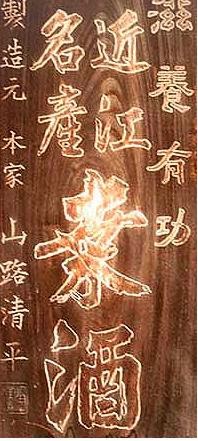 滋養有功
近江
名産
桒酒
製造元 本家 山路清平